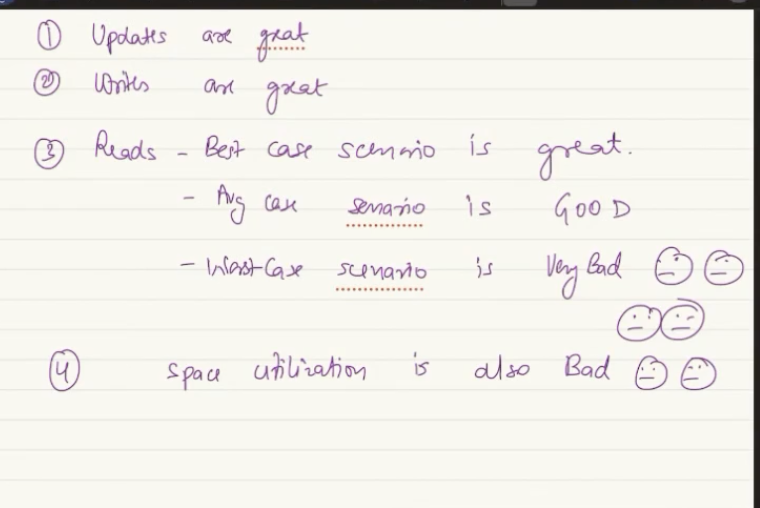 ① Updates are great
② Writes are great
③ Reads - Best case scenario is great.
- Avg case senario is GOOD
- Worst Case scenario is Very Bad
④ space utilization is also Bad